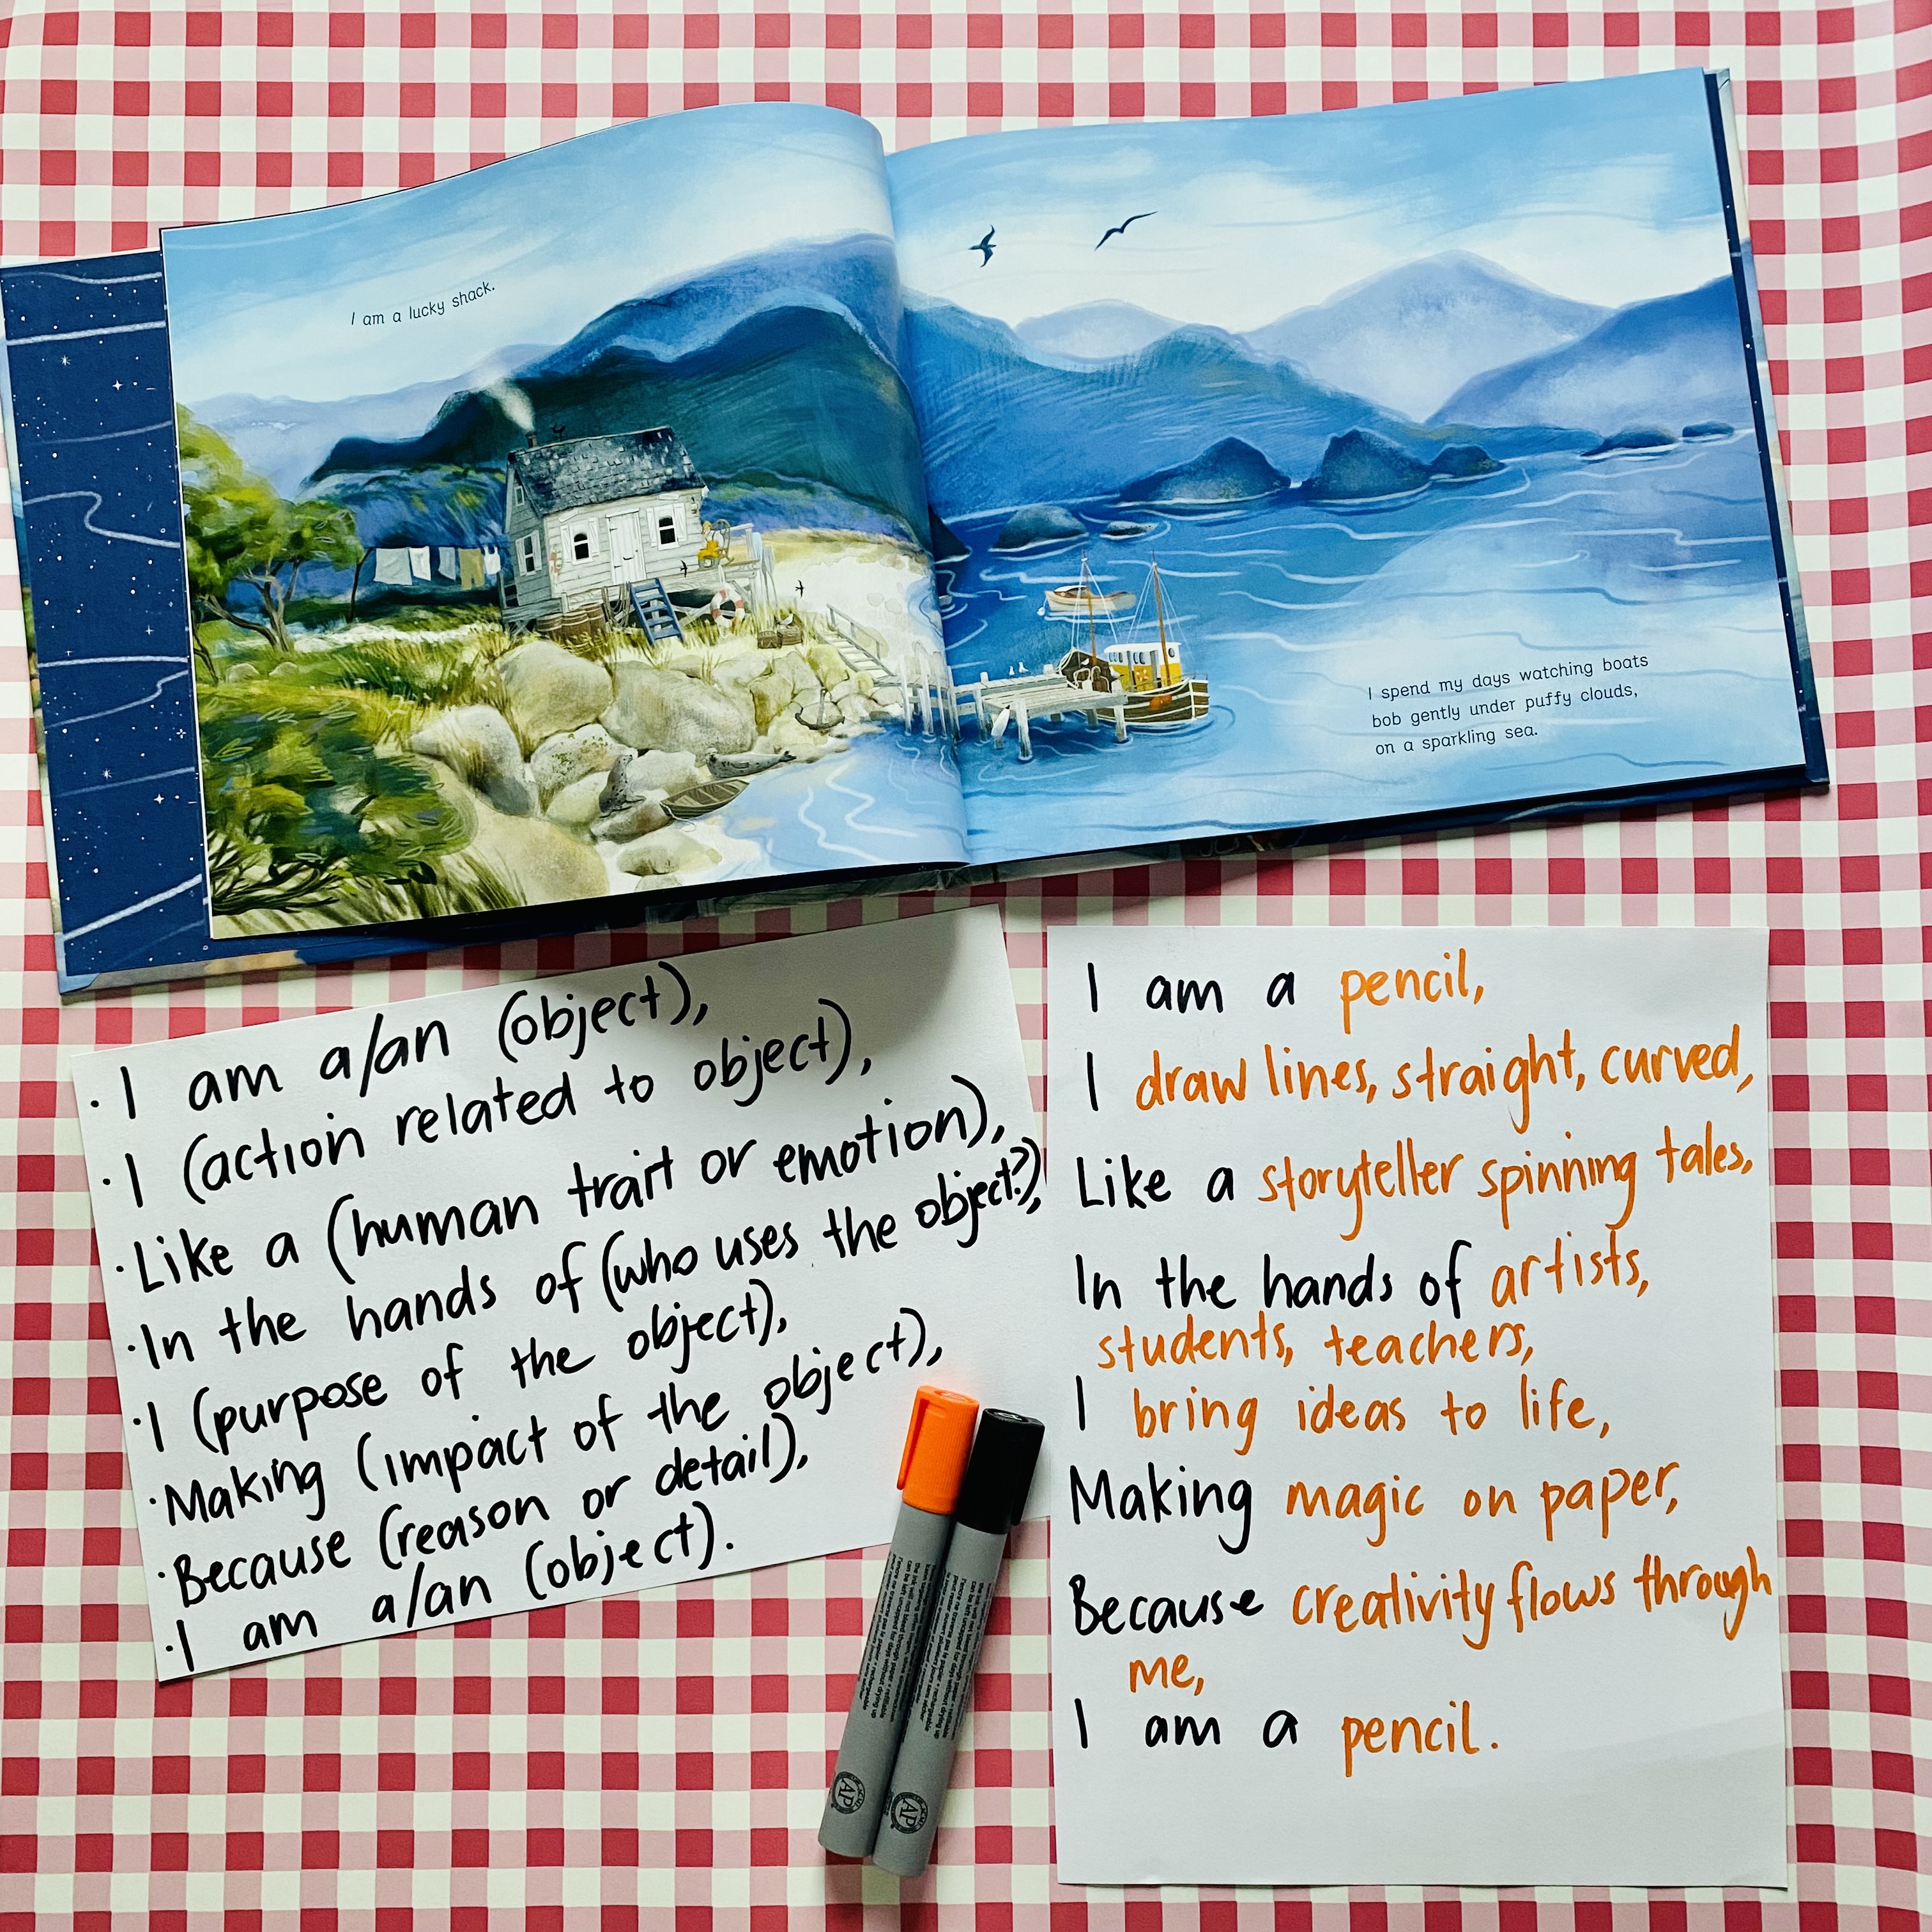 I am a lucky shack.
I spend my days watching boats
bob gently under puffy clouds,
on a sparkling sea.
· I am a/an (object),
· I (action related to object),
· Like a (human trait or emotion),
· In the hands of (who uses the object?),
· I (purpose of the object),
· Making (impact of the object),
· Because (reason or detail),
· I am a/an (object).
I am a pencil,
I draw lines, straight, curved,
Like a storyteller spinning tales,
In the hands of artists,
students, teachers,
I bring ideas to life,
Making magic on paper,
Because creativity flows through
me,
I am a pencil.
AP
AP